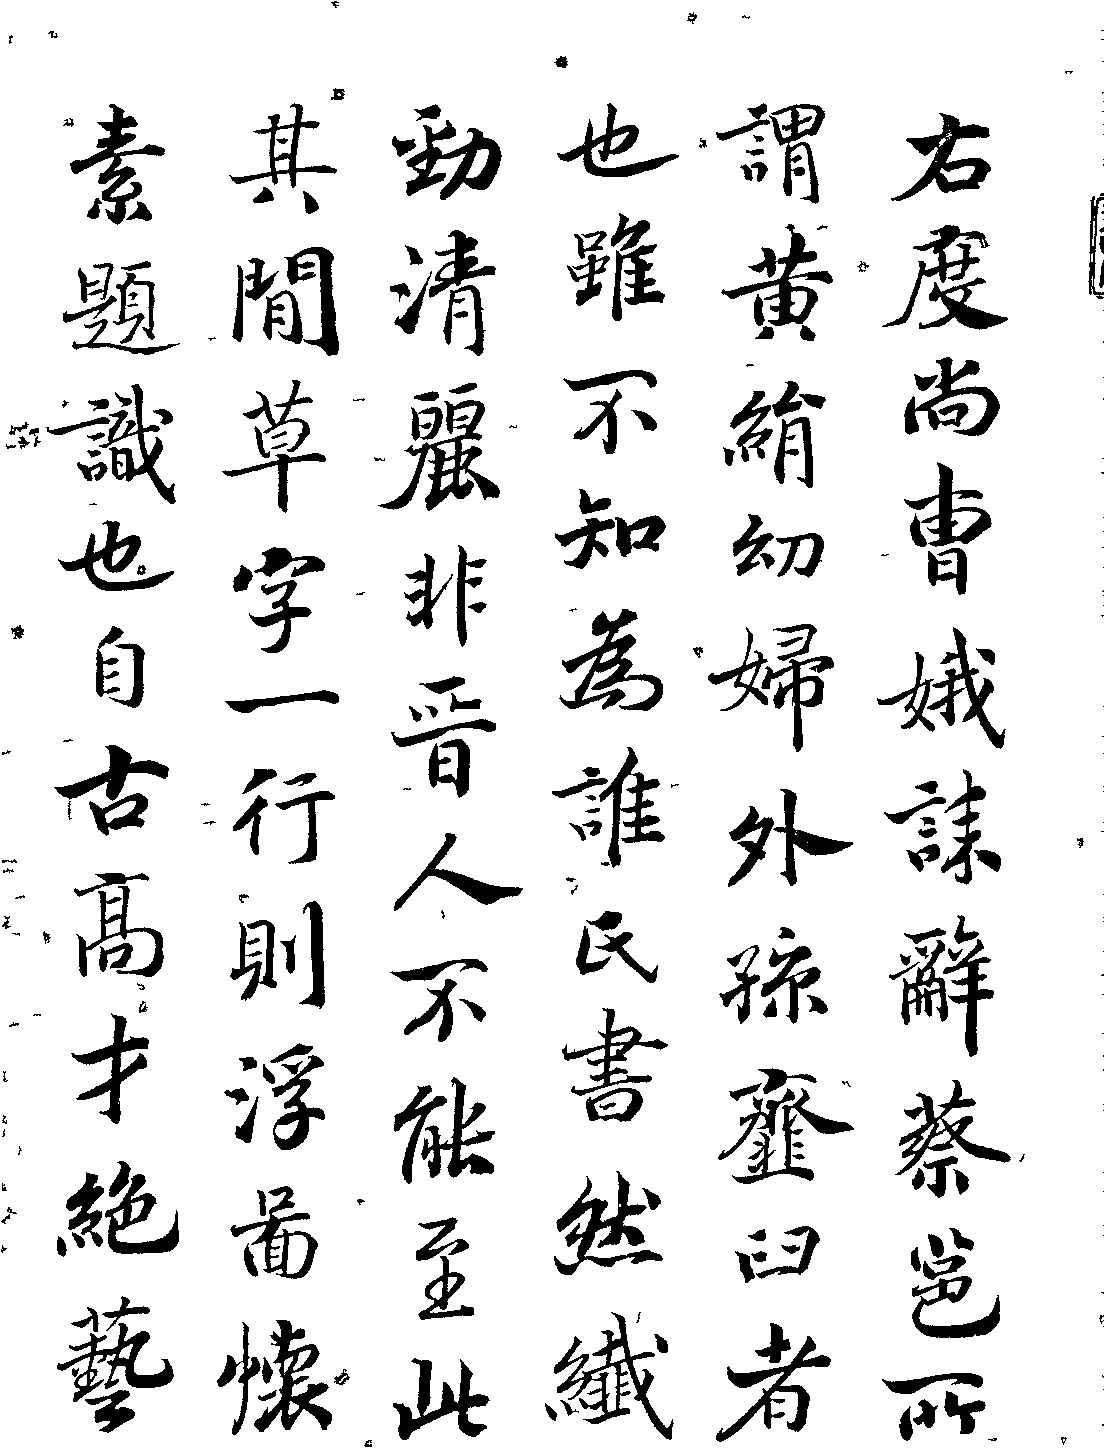 右度尚曹娥誄辭蔡邕所
謂黄絹幼婦外孫虀臼者
也雖不知為誰氏書然纖
勁清麗非晉人不能至此
其閒草字一行則浮啚懷
素題識也自古髙才絶藝